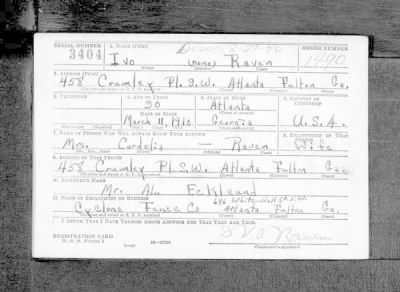 SERIAL NUMBER 1. NAME (Print) ORDER NUMBER
3404 Ivo (none) Raven 1490
(First) (Middle) (Last)
2. ADDRESS (Print)
458 Crumley Pl. S.W. Atlanta Fulton Ga.
3. TELEPHONE 4. AGE IN YEARS 5. PLACE OF BIRTH 6. COUNTRY OF CITIZENSHIP
30 Atlanta
DATE OF BIRTH
March 11, 1910 Georgia U.S.A.
7. NAME OF PERSON WHO WILL ALWAYS KNOW YOUR ADDRESS 8. RELATIONSHIP OF THAT PERSON
Mrs. Cordelia Raven Wife
9. ADDRESS OF THAT PERSON
458 Crumley Pl. S.W. Atlanta Fulton Ga.
10. EMPLOYER'S NAME
Mr. Al
11. PLACE OF EMPLOYMENT OR BUSINESS
Cyclone Fence Co Atlanta Fulton Ga.
I AFFIRM THAT I HAVE VERIFIED ABOVE ANSWERS AND THAT THEY ARE TRUE.
REGISTRATION CARD
D. S. S. Form 1
Raven
(Registrant's signature)